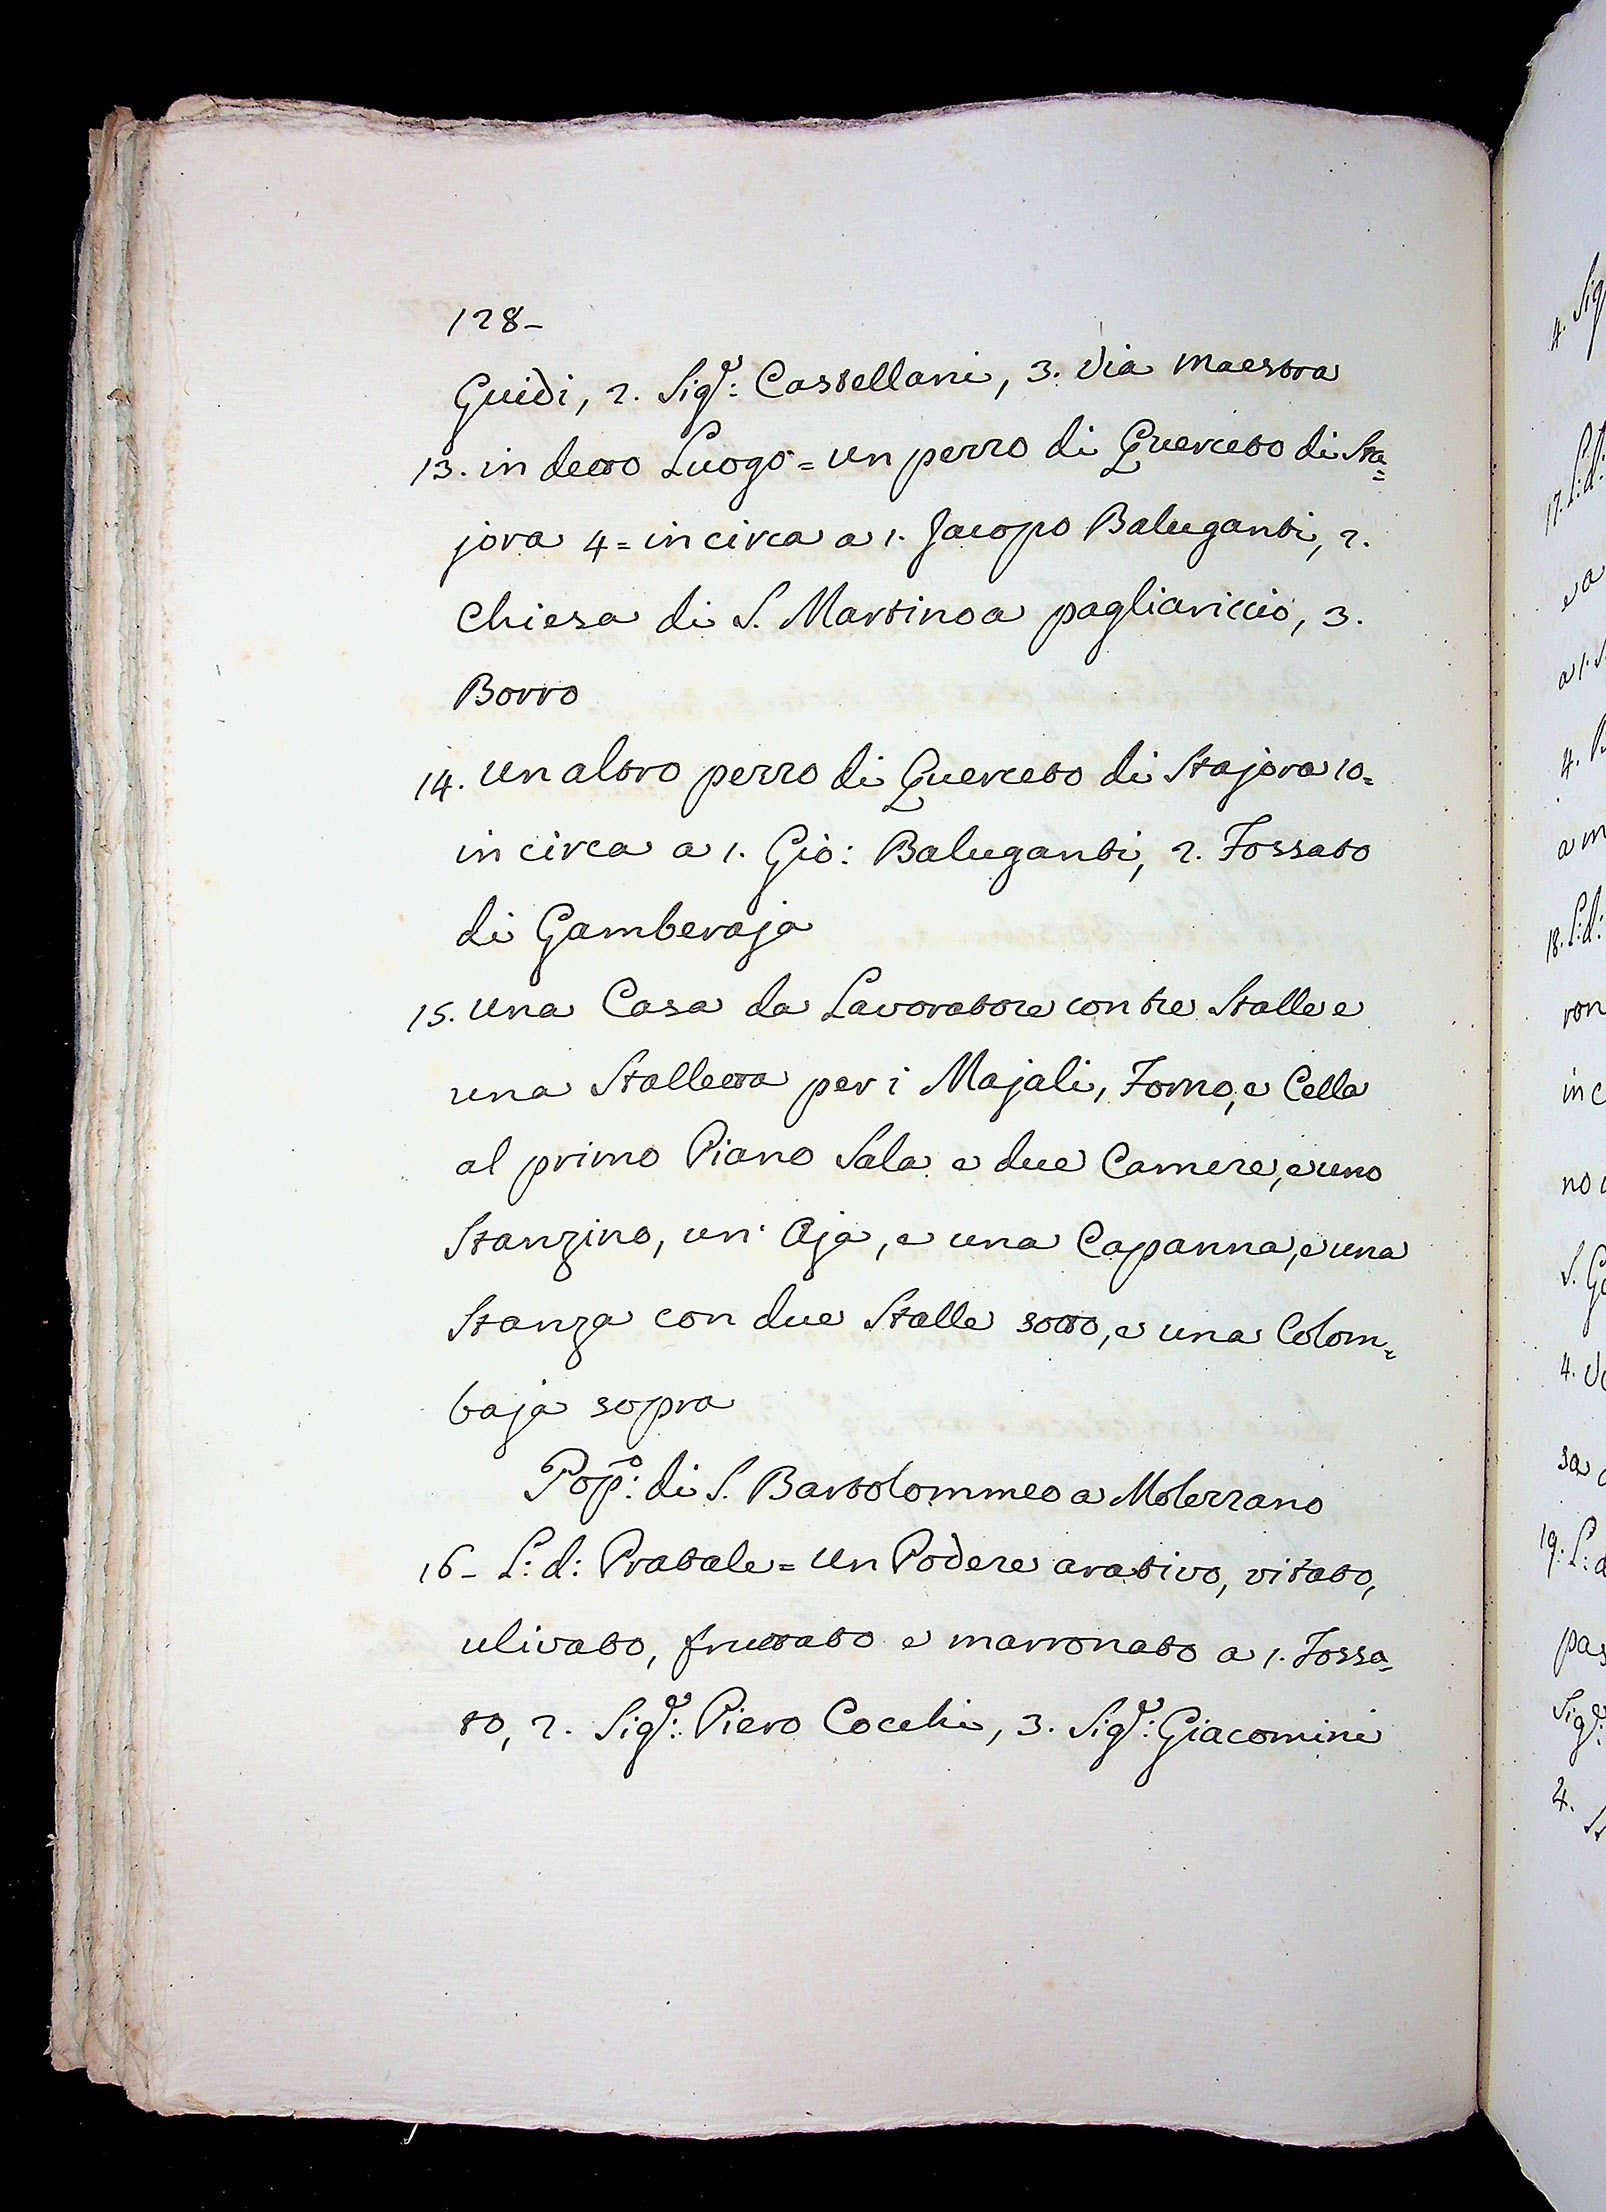 128-
Guidi, 2. Sig.r: Castellani, 3. Via Maestra
13. in detto Luogo = un pezzo di Querceto di Sta=
jora 4 = in circa a 1. Jacopo Baluganti, 2.
Chiesa di S. Martino a pagliariccio, 3.
Borro
14. un altro pezzo di Querceto di Stajora 10=
in circa a 1. Gio: Baluganti, 2. Fossato
di Gamberaja
15. una Casa da Lavoratore con tre Stalle e
una Stalletta per i Majali, Forno, e Cella
al primo Piano Sala e due Camere, e uno
Stanzino, un' Aja, e una Capanna, e una
Stanza con due Stalle sotto, e una Colom=
baja sopra
Pop.o: di S. Bartolommeo a Molezzano
16- L: d: Pratale = un Podere arativo, vitato,
ulivato, fruttato e marronato a 1. Fossa=
to, 2. Sig.r: Piero Cocchi, 3. Sig.r: Giacomini
4. Sig
17. L: d:
e a
a 1. S.
4.
a m
18. L: d:
ron
in c
no
S. G
4. V
sa
19. L: d
pas
Sig.r:
4.